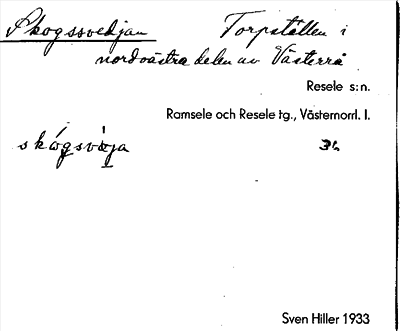 Skogssvedjan Torpställen i
nordvästra delen av Västerrå
Resele s:n.
Ramsele och Resele tg., Västernorrl. l.
skógsvӓ̀ja 34
Sven Hiller 1933